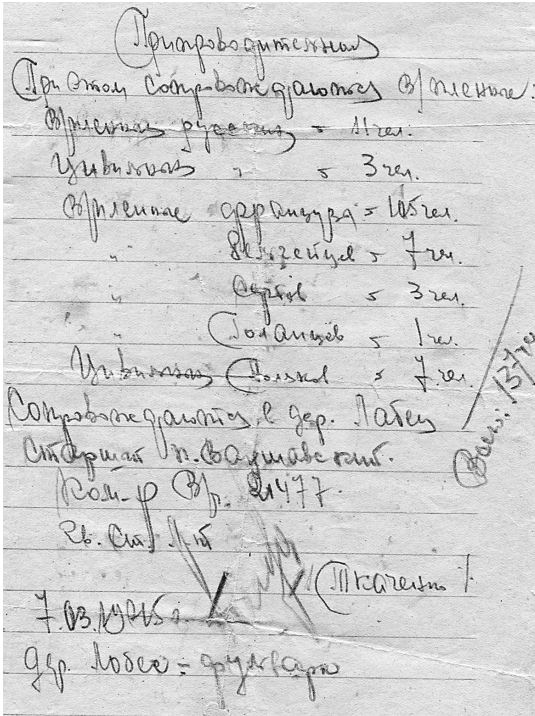 Припроводительная
При этом сопровождаются в/пленные:
В/пленных русских = 11 чел.
Цивильных " = 3 чел.
В/пленные французы = 105 чел.
" Бельгейцев = 7 чел.
" Сербов = 3 чел.
" Голанцев = 1 чел.
Цивильных Поляков = 7 чел.
Всего: 137 че
Сопровождаются в дер. Лабец
Старший п. Варшавский.
Ком-р В/ч. 21477.
Гв. Ст. Л-т
/Ткаченко/
7.03.1945 г.
Дер. Лобес = фульварк